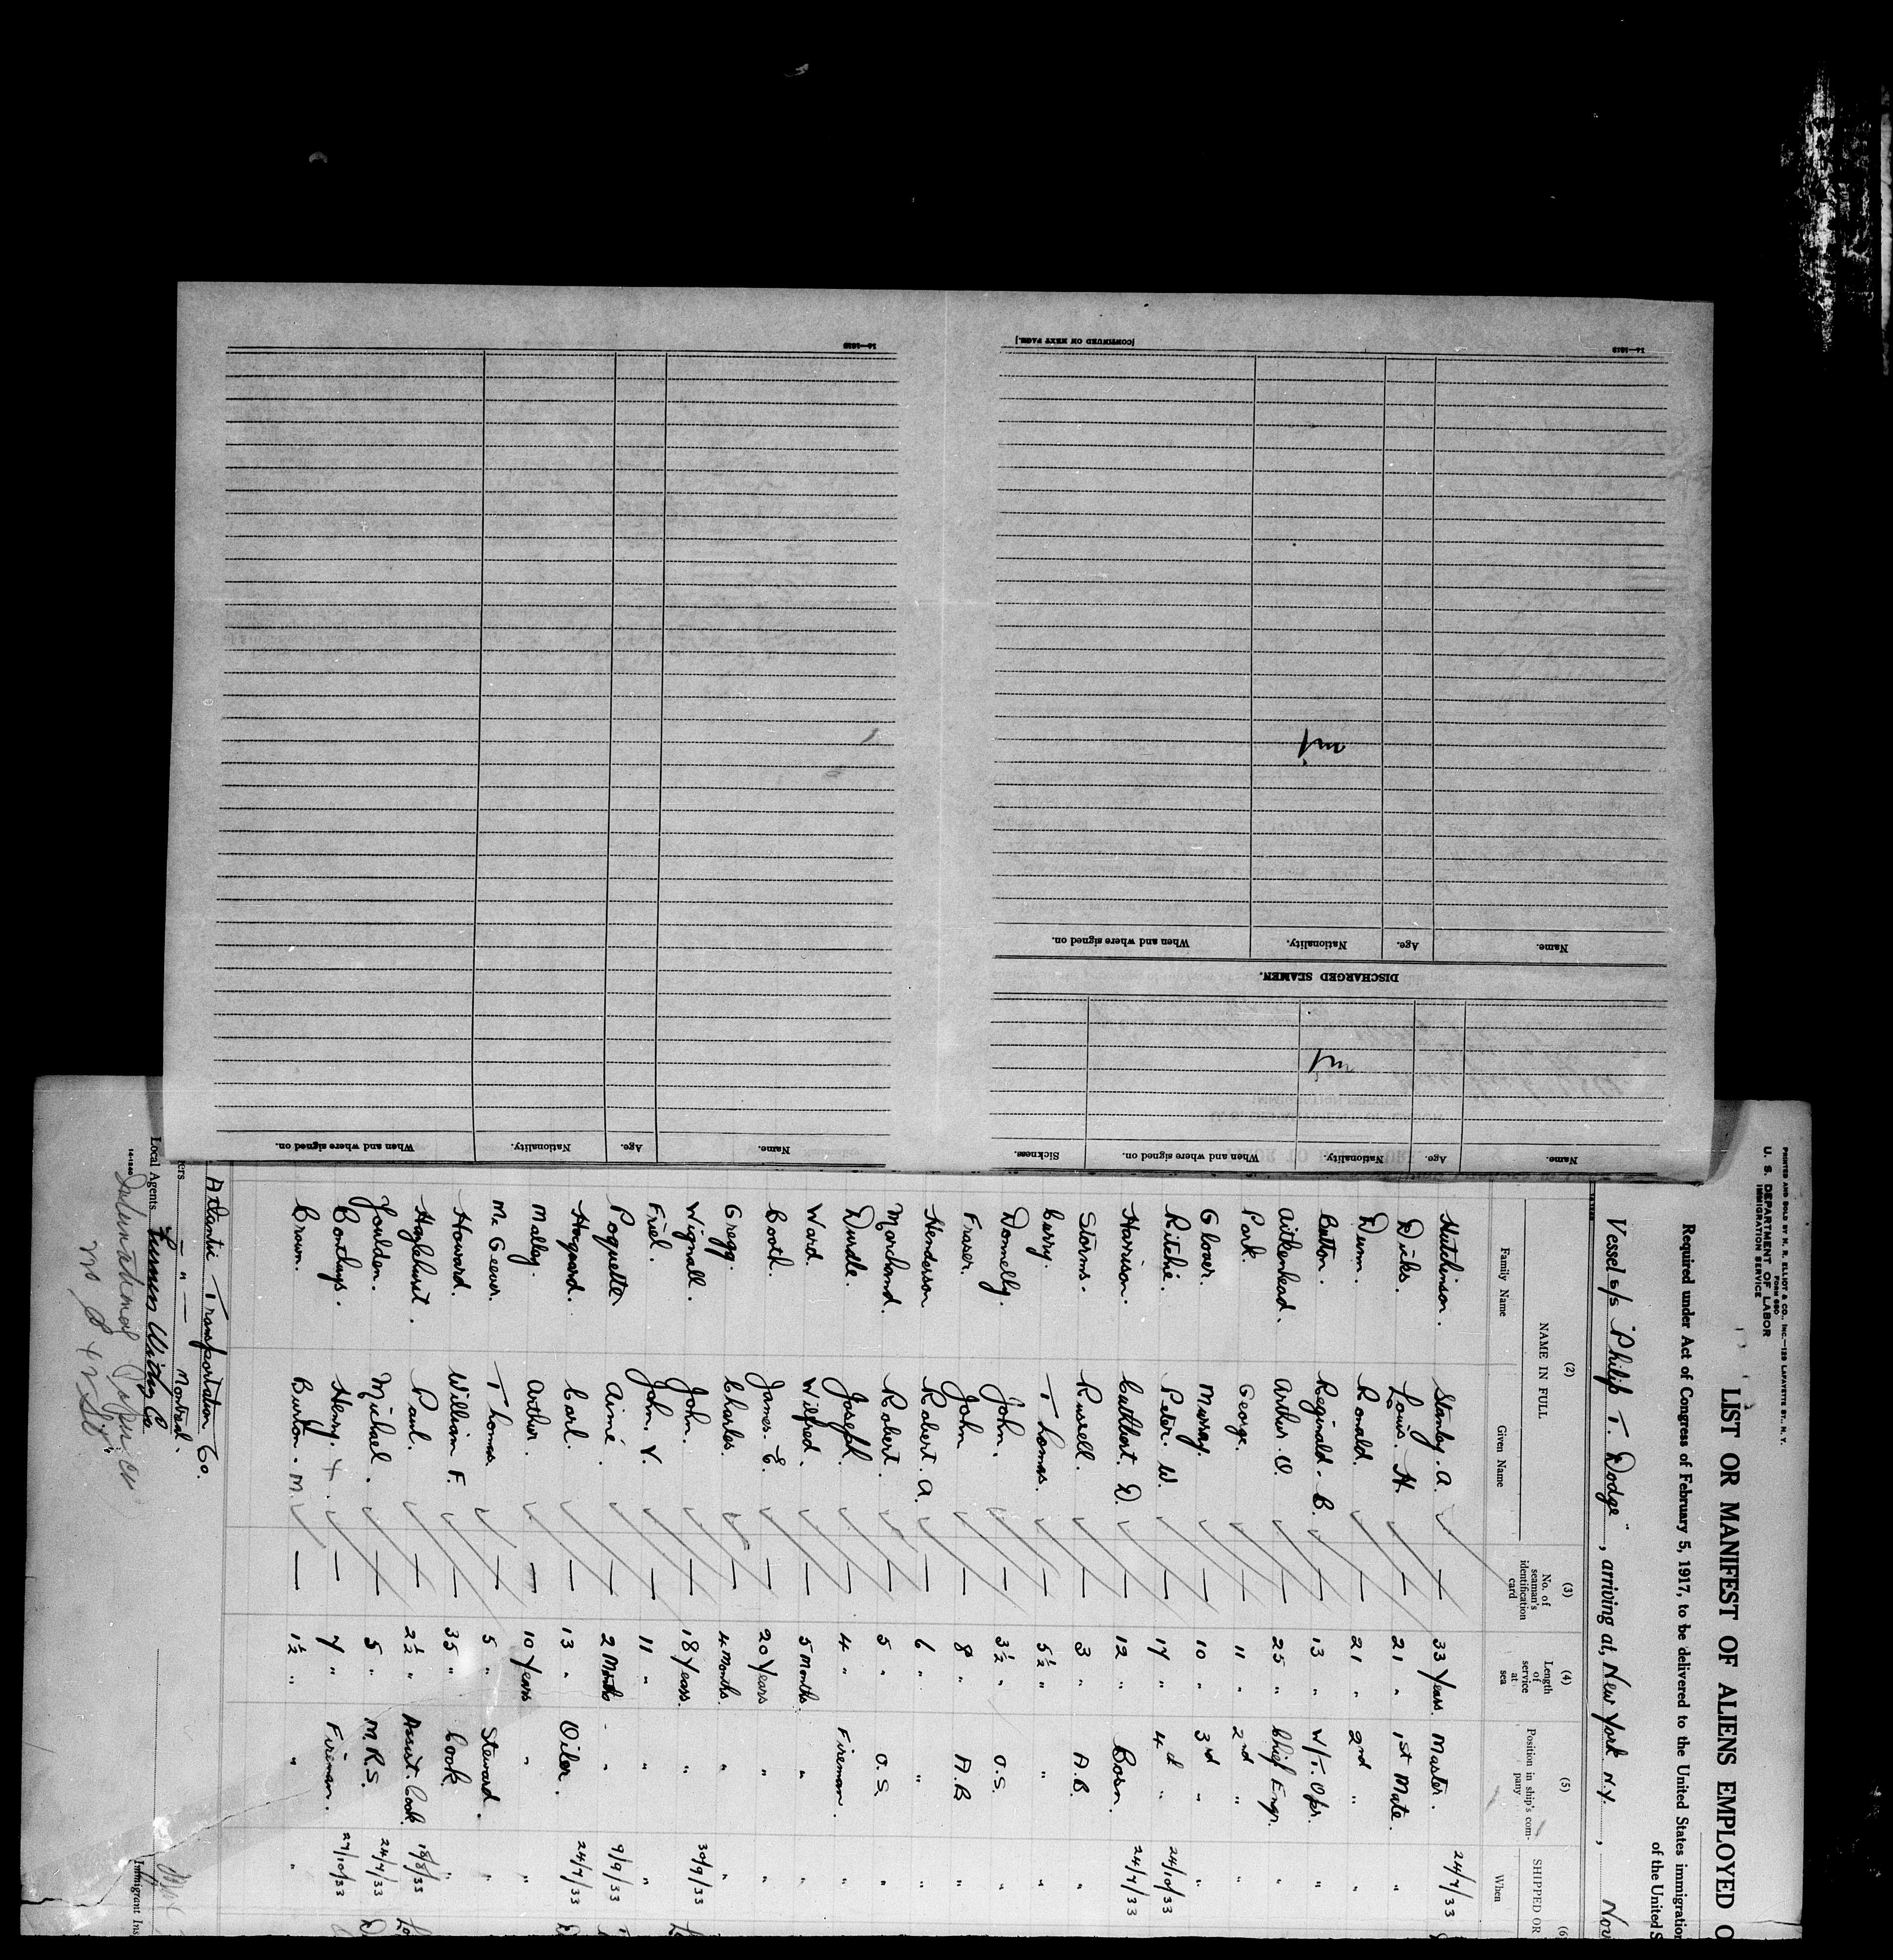 14—1240
When and where signed on. Nationality. Age. Name.
[CONTINUED ON NEXT PAGE.]
DISCHARGED SEAMEN.
Name. Age. Nationality. When and where signed on.
Name. Age. Nationality. When and where signed on. Sickness.
PRINTED AND SOLD BY H. R. ELLIOT & CO., INC.—129 LAFAYETTE ST., N. Y.
Form 680
U. S. DEPARTMENT OF LABOR
IMMIGRATION SERVICE
LIST OR MANIFEST OF ALIENS EMPLOYED O
Required under Act of Congress of February 5, 1917, to be delivered to the United States immigration
of the United S
Vessel s/s "Philip T. Dodge", arriving at, New York N.Y., Nov
(2) (3) (4) (5) (6
NAME IN FULL No. of seaman's identification card Length of service at sea Position in ship's company SHIPPED OR
Family Name Given Name When
Hutchinson. Stanley. A. — 33 Years. Master. 24/7/33
Dicks. Louis. H. — 21 " 1st Mate. "
Dunn. Ronald. — 21 " 2nd " "
Batton. Reginald. B. — 13 " W/T. Opr. "
Aitkenhead. Arthur. O. — 25 " Chief Engr. "
Park. George. — 11 " 2nd " "
Glover. Murray. — 10 " 3rd " "
Ritchie. Peter. W. — 17 " 4th " 24/10/33
Harrison. Cuthbert. D. — 12 " Bosn. 24/7/33
Storms. Russell. — 3 " A.B. "
Curry. Thomas. — 5½ " " "
Donnelly. John. — 3½ " O.S. "
Fraser. John — 8 " A.B "
Henderson Robert. A. — 6 " " "
Marchand. Robert. — 5 " O.S "
Durdle. Joseph. — 4 " Fireman. "
Ward. Wilfred. — 5 Months. " "
Booth. James. E. — 20 Years " "
Gregg. Charles. — 4 Months. " "
Wignall. John. — 18 Years. " 30/9/33
Friel. John. V. — 11 " " "
Poquette Aimé. — 2 Months " 9/9/33
Hogward. Carl. — 13 " Oiler. 24/7/33
Malley. Arthur. — 10 Years " "
Mc Geever. Thomas. — 5 " Steward. "
Howard. William F. — 35 " Cook. "
Hazlehurst. Paul. — 2½ " Assist. Cook. 18/8/33
Joulden. Michael. — 5 " M.R.S. 24/7/33
Henry. — 7 " Fireman. 27/10/33
Brawn. Burton. M. — 1½ " " "
Atlantic Transportation Co.
ers — " — Montreal.
Local Agents Furness Withy Co.
14-1240
Immigrant Ins